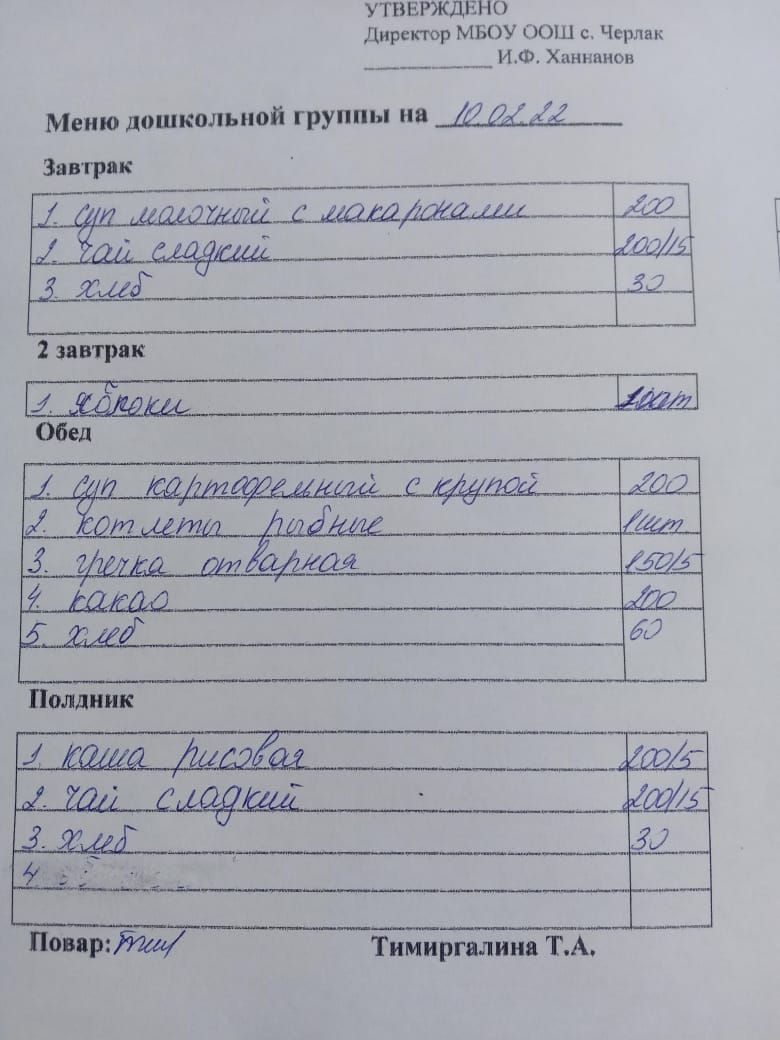 УТВЕРЖДЕНО
Директор МБОУ ООШ с. Черлак
_______________ И.Ф. Ханнанов
Меню дошкольной группы на 10.02.22
Завтрак
1. суп молочный с макаронами 200
2. чай сладкий 200/15
3. хлеб 30
2 завтрак
1. яблоки
Обед
1. суп картофельный с крупой 200
2. котлеты рыбные 1шт
3. гречка отварная 150/5
4. какао 200
5. хлеб 60
Полдник
1. каша рисовая 200/5
2. чай сладкий 200/15
3. хлеб 30
4
Повар: Тимиргалина Т.А.